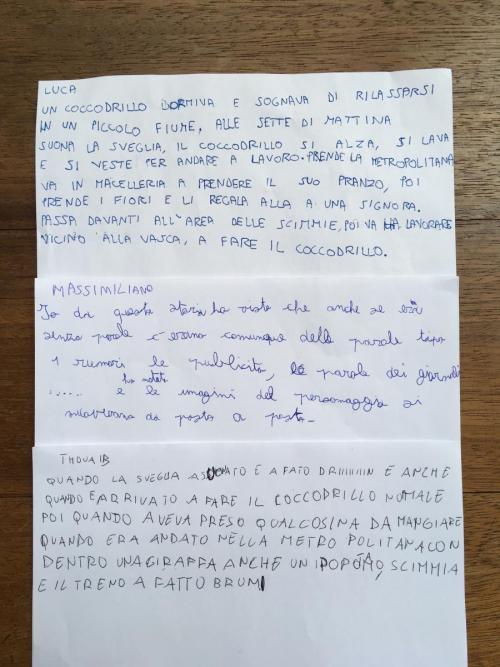 LUCA
UN COCCODRILLO DORMIVA E SOGNAVA DI RILASSARSI
IN UN PICCOLO FIUME, ALLE SETTE DI MATTINA
SUONA LA SVEGLIA, IL COCCODRILLO SI ALZA, SI LAVA
E SI VESTE PER ANDARE A LAVORO. PRENDE LA METROPOLITANA
VA IN MACELLERIA A PRENDERE IL SUO PRANZO, POI
PRENDE I FIORI E LI REGALA ALLA A UNA SIGNORA.
PASSA DAVANTI ALL'AREA DELLE SCIMMIE, POI VA LAVORARE
VICINO ALLA VASCA, A FARE IL COCCODRILLO.
MASSIMILIANO
Io da questa storia ho visto che anche se era
senza parole c'erano comunque delle parole tipo
i rumori le pubblicità, le parole dei giornali
ho notato
..... e le imagini del personaggio si
da posto a posto-
THOUAIB
QUANDO LA SVEGLIA A SUONATO E A FATO DRIIIIIIIIN E ANCHE
QUANDO E ARRIVATO A FARE IL COCCODRILLO NOMALE
POI QUANDO AVEVA PRESO QUALCOSINA DA MANGIARE
QUANDO ERA ANDATO NELLA METRO POLITANA CON
DENTRO UNA GIRAFFA ANCHE UN IPOPOTAMO, SCIMMIA
E IL TRENO A FATTO BRUM